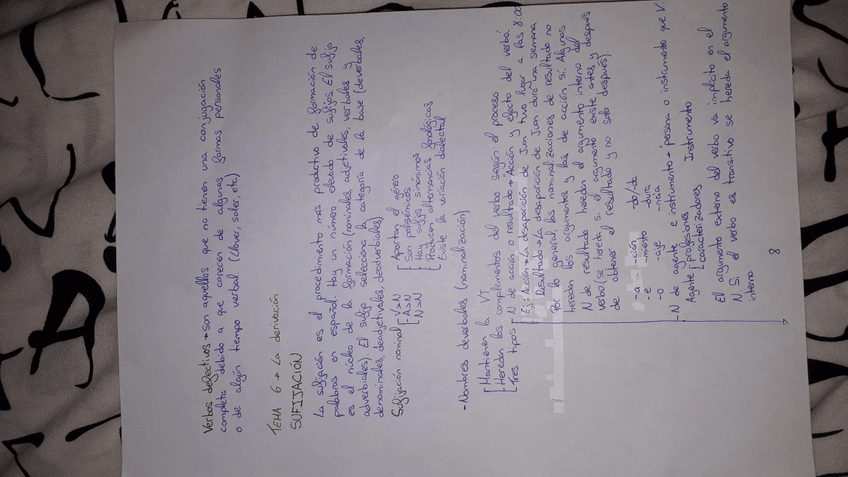 Verbos defectivos → son aquellos que no tienen una conjugación
completa debido a que carecen de algunas formas personales
o de algún tiempo verbal (llover, soler, etc)
TEMA 6 → La derivación
SUFIJACIÓN
La sufijación es el procedimiento más productivo de formación de
palabras en español. Hay un número elevado de sufijos. El sufijo
es el núcleo de la formación (nominales, adjetivales, verbales y
adverbiales). El sufijo selecciona la categoría de la base (deverbales,
denominales, deadjetivales, deadverbiales)
Sufijación nominal V>N Aportan el género
A>N Son polisémicos
N>N Hay sufijos sinónimos
Producen alternancias fonológicas
Existe la variación dialectal
- Nombres deverbales (nominalización)
Mantienen la VT
Heredan los complementos del verbo según el proceso
Tres tipos - N de acción o resultado → Acción y efecto del verbo.
Ej: Acción → La desaparición de Juan tuvo lugar a las 8.00
Resultado → La desaparición de Juan duró una semana
Por lo general, las nominalizaciones de resultado no
heredan los argumentos y las de acción sí. Algunas
N de resultado heredan el argumento interno del
verbo (se hereda si el argumento existe antes y después
de obtener el resultado y no solo después)
-a -ción -do/-da
-e -miento -dura
-o -aje -ncia
- N de agente e instrumento → persona o instrumento que V
Agente profesiones Instrumento
caracterizadores
El argumento externo del verbo va implícito en el
N. Si el verbo es transitivo se hereda el argumento
interno
8